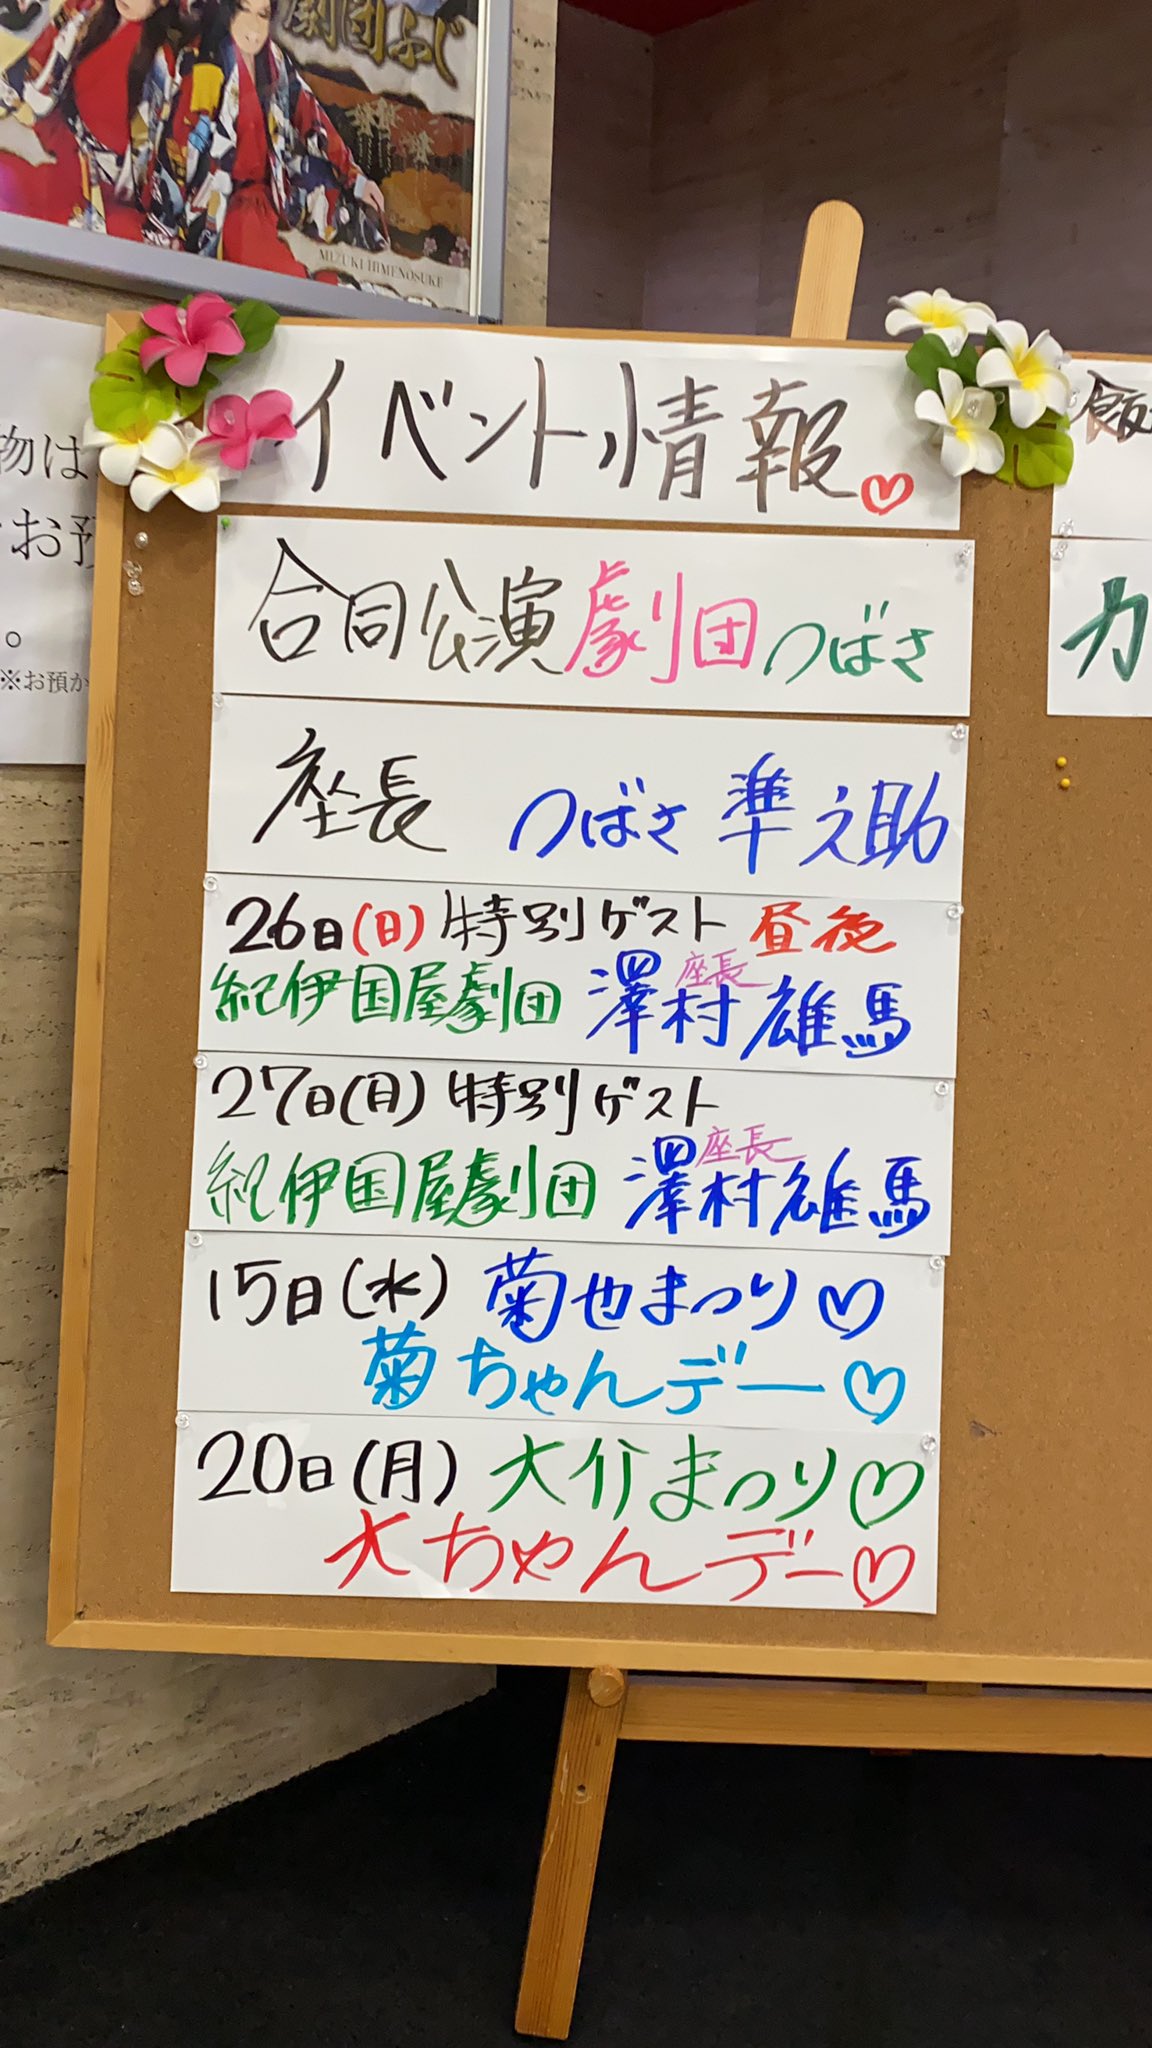 劇団ふじ
MIZUKI HIMENOSUKE
物は
お預
。
※お預か
イベント情報♡
合同公演劇団つばさ
座長 つばさ準之助
26日(日)特別ゲスト 昼夜
紀伊国屋劇団 澤村雄馬 座長
27日(月)特別ゲスト
紀伊国屋劇団 澤村雄馬 座長
15日(水)菊也まつり♡
菊ちゃんデー♡
20日(月)大介まつり♡
大ちゃんデー♡
飯
カ